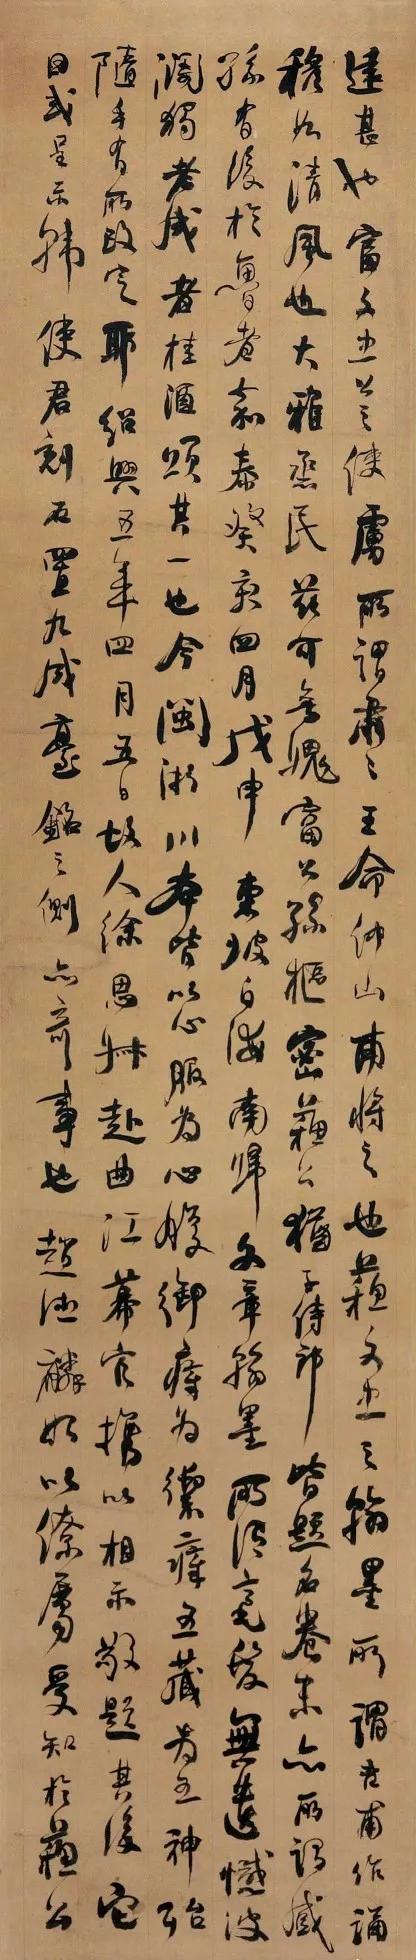 遠甚也富文忠公之使虜所謂肅々王命仲山甫將之也蘇文忠之翰墨所謂吉甫作誦
穆如清風也大雅烝民茲可無愧富公孫樞密蘇公猶子侍郎皆題名卷末亦所謂臧
孫有後於魯者嘉泰癸亥四月戊申東坡自海南歸文章翰墨所謂毫髮無遺憾波
瀾獨老成者桂酒頌其一也今閩浙川本皆以心服為心腹御瘴為禦瘴五藏為五神殆
隨手有所改定耶紹興五年四月五日故人徐思叔赴曲江幕官攜以相示敬題其後它
日或呈示韓使君刻石置九成臺銘之側亦奇事也趙德麟以僚屬受知於蘇公